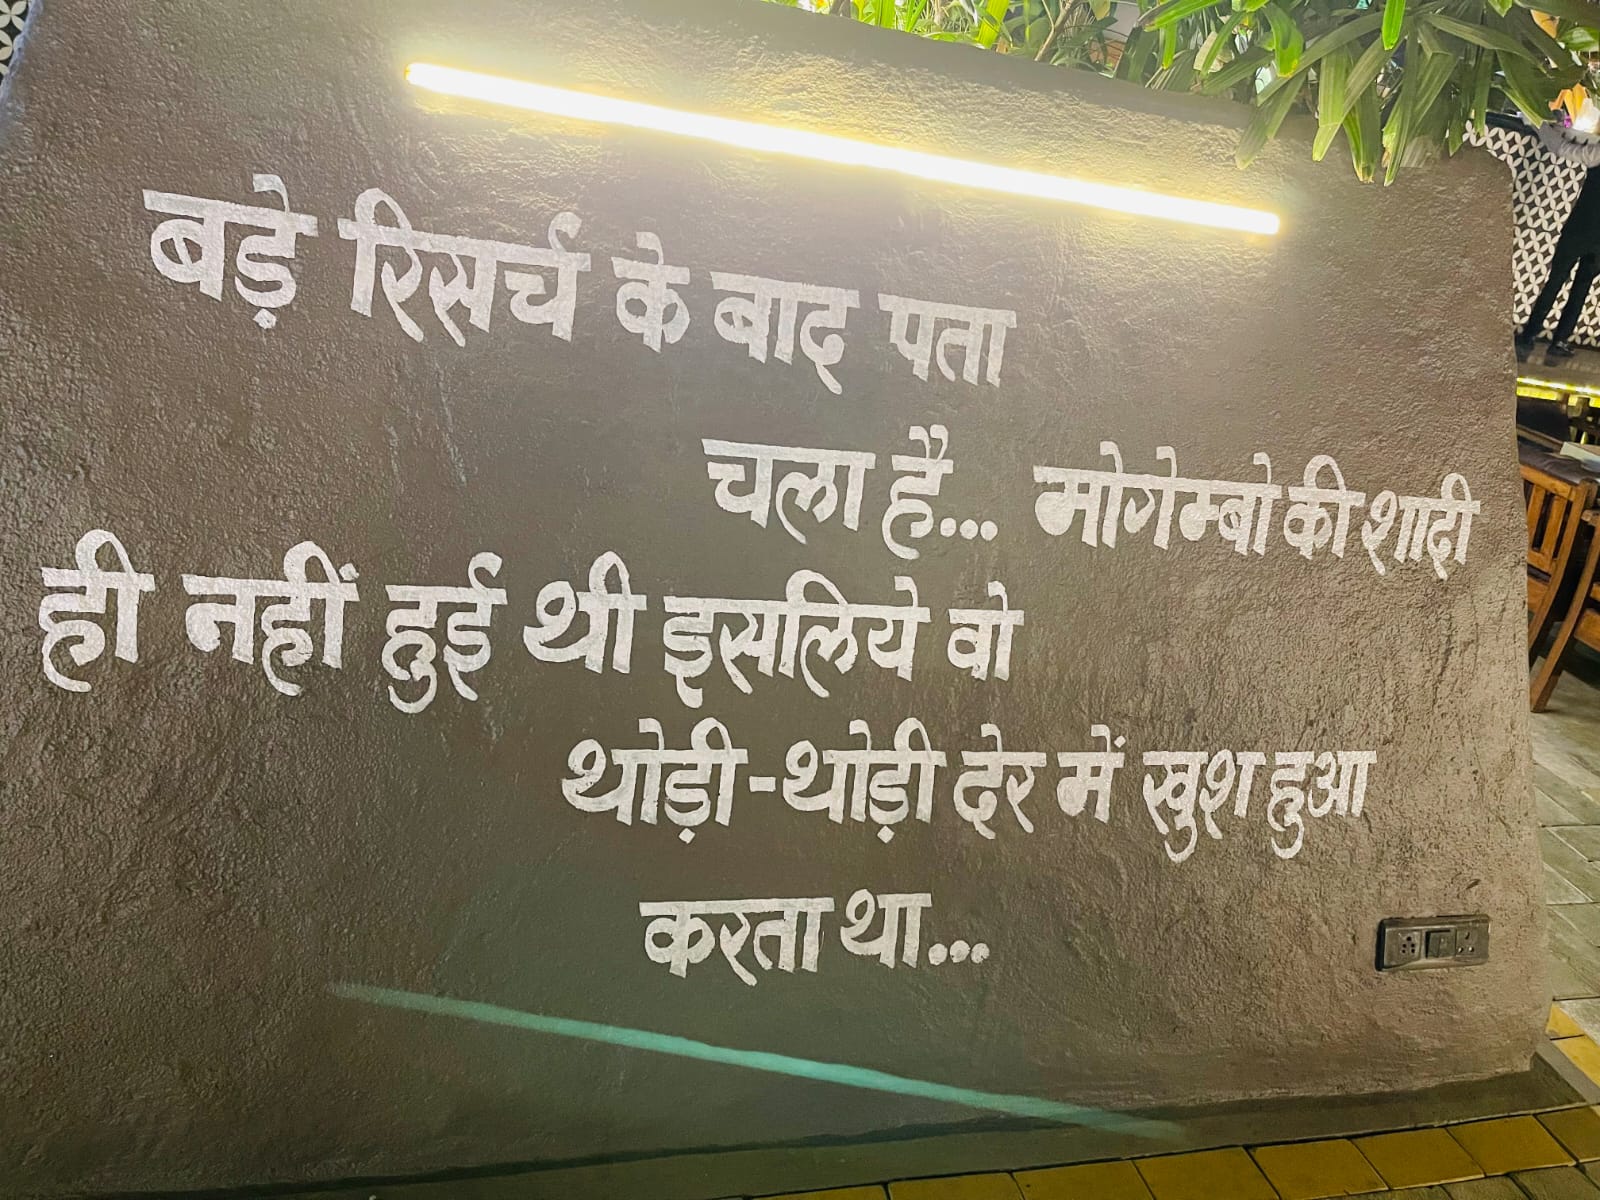 बड़े रिसर्च के बाद पता
चला है... मोगेम्बो की शादी
ही नहीं हुई थी इसलिये वो
थोड़ी-थोड़ी देर में खुश हुआ
करता था...